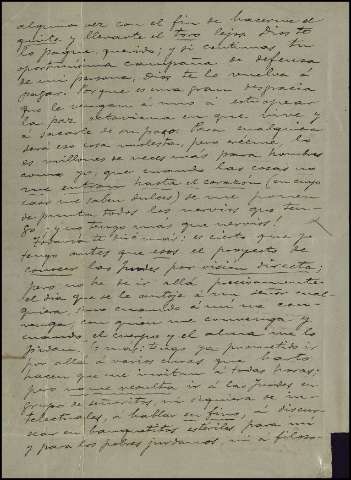 alguna vez con el fin de hacerme el
quite y llevarte el toro lejos. Dios te
lo pague, querido; y si continuas tu
oportunísima campaña de defensa
de mi persona, Dios te lo vuelva á
pagar. Porque es una gran desgracia
que le vengan á uno á estropear
la paz octaviana en que vive y
á sacarle de su paso. Para cualquiera
será eso cosa molesta, pero encima lo
es millones de veces más para hombres
como yo, que cuando las cosas no
me entran hasta el corazon (en cuyo
caso me saben dulces) se me ponen
de punta todos los nervios que ten-
go, ¡y no tengo más que nervios!
te diré más: es cierto que yo
tengo antes que esos el proyecto de
conocer las Jurdes por visión directa;
pero no he de ir allá precisamente
el día que se le antoje á un señor cual-
quiera, sino cuando á mí me con-
venga, con quien me convenga y
cuando el cuerpo y el alma me lo
pidan. Tengo ya prometido ir
por allá á varios curas que harto
hacen que me invitan á todas horas;
pero no me resulta ir á las Jurdes en
grupo de señoritos, ni siquiera de in-
telectuales, á hablar en fino, á discur-
sear en banquetitos estériles para mí
y para los pobres jurdanos, ni á filoso-